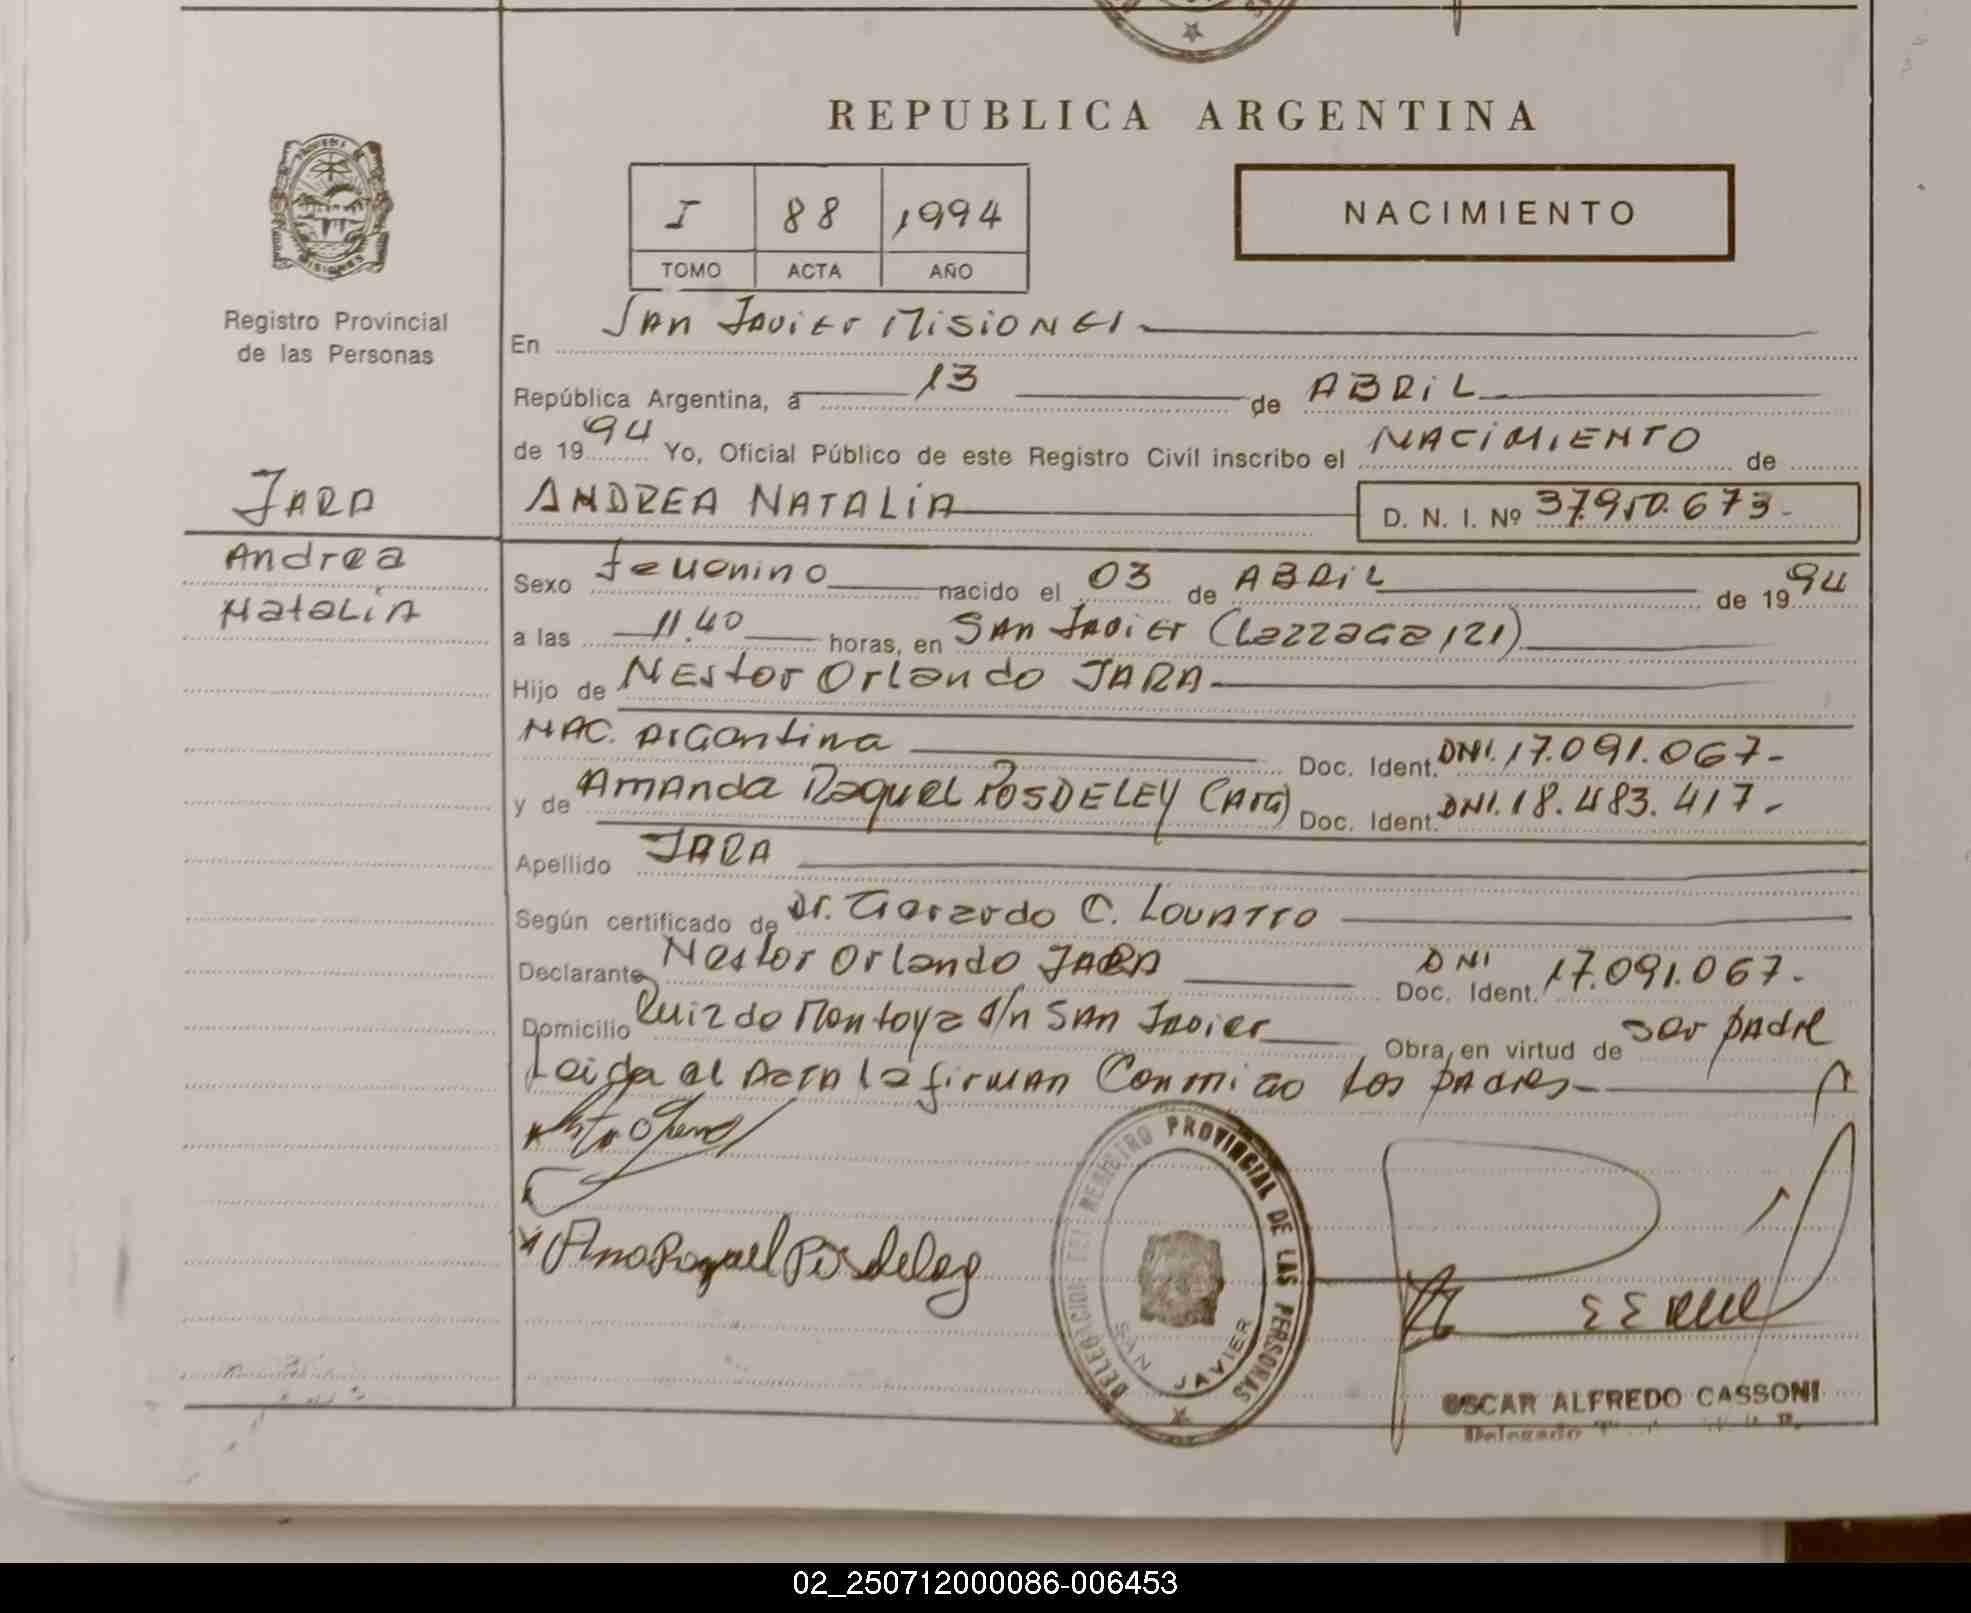 REPUBLICA ARGENTINA
I 88 1994
TOMO ACTA AÑO
NACIMIENTO
MISIONES
Registro Provincial
de las Personas
JARA
Andrea
Natalia
En San Javier Misiones
República Argentina, a 13 de ABRIL
de 1994 Yo, Oficial Público de este Registro Civil inscribo el NACIMIENTO de
ANDREA NATALIA D. N. I. Nº 37.950.673-
Sexo femenino nacido el 03 de ABRIL de 1994
a las 11.40 horas, en San Javier (Lazzaga 121)
Hijo de Nestor Orlando JARA
NAC. Argentina Doc. Ident. DNI. 17.091.067-
y de Amanda Raquel POSDELEY (Arg) Doc. Ident. DNI. 18.483.417-
Apellido JARA
Según certificado de Dr. Gerardo C.
Declarante Nestor Orlando JARA Doc. Ident. DNI 17.091.067.
Domicilio Ruiz de Montoya s/n San Javier Obra en virtud de ser padre
Leida el Acta la firman Conmigo los padres
DELEGACION DEL REGISTRO PROVINCIAL DE LAS PERSONAS
SAN JAVIER
OSCAR ALFREDO CASSONI
Delegado
02_250712000086-006453